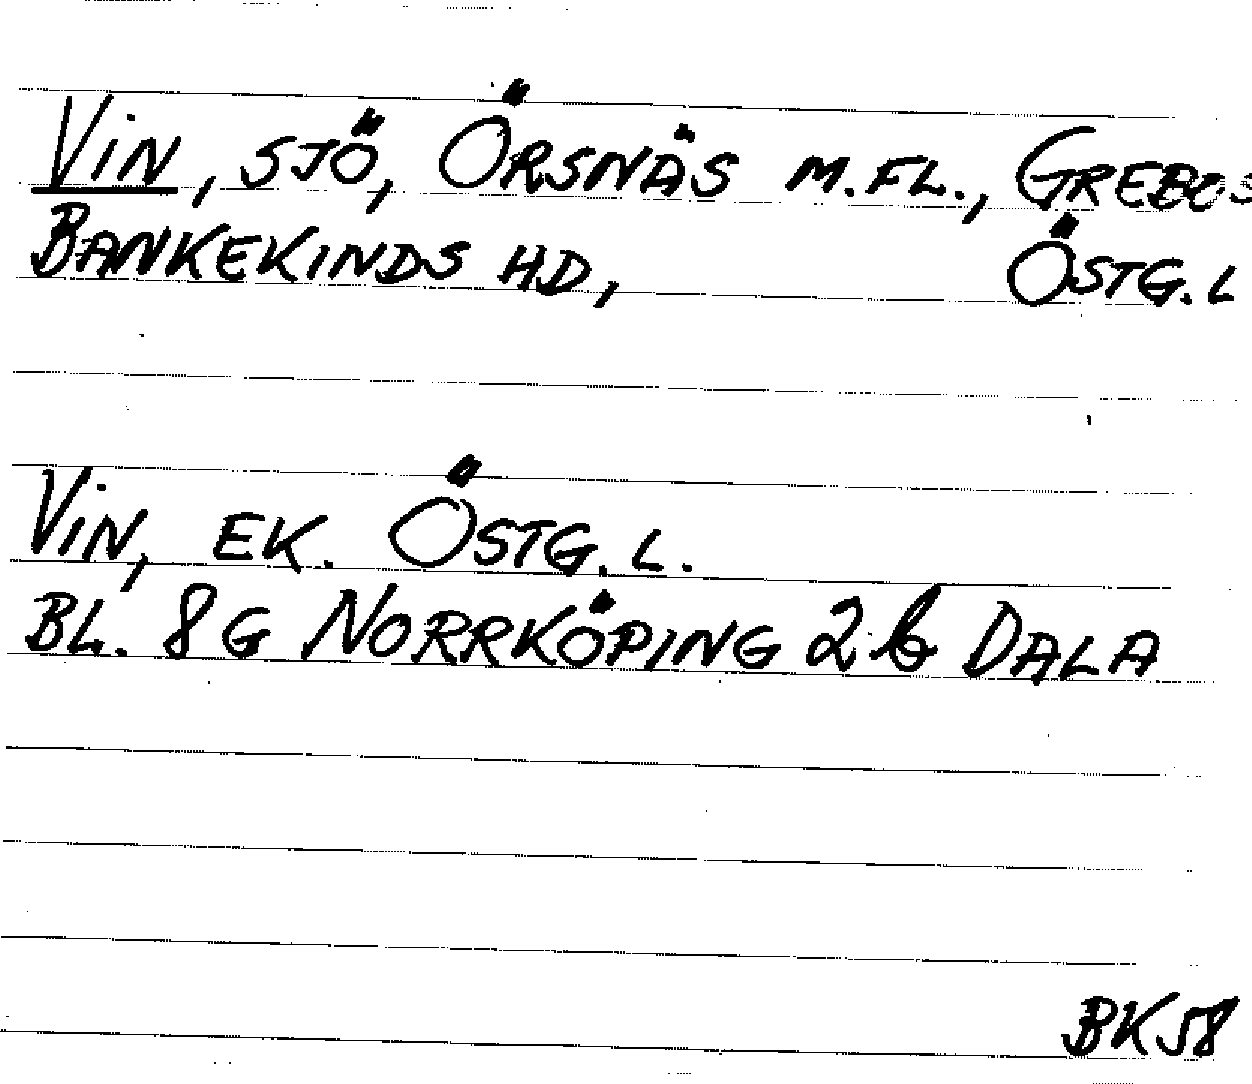 VIN, SJÖ, ÖRSNÄS M.FL., GREBO S
BANKEKINDS HD, ÖSTG.L
VIN, EK. ÖSTG.L.
BL. 8G NORRKÖPING 2b DALA
BK58